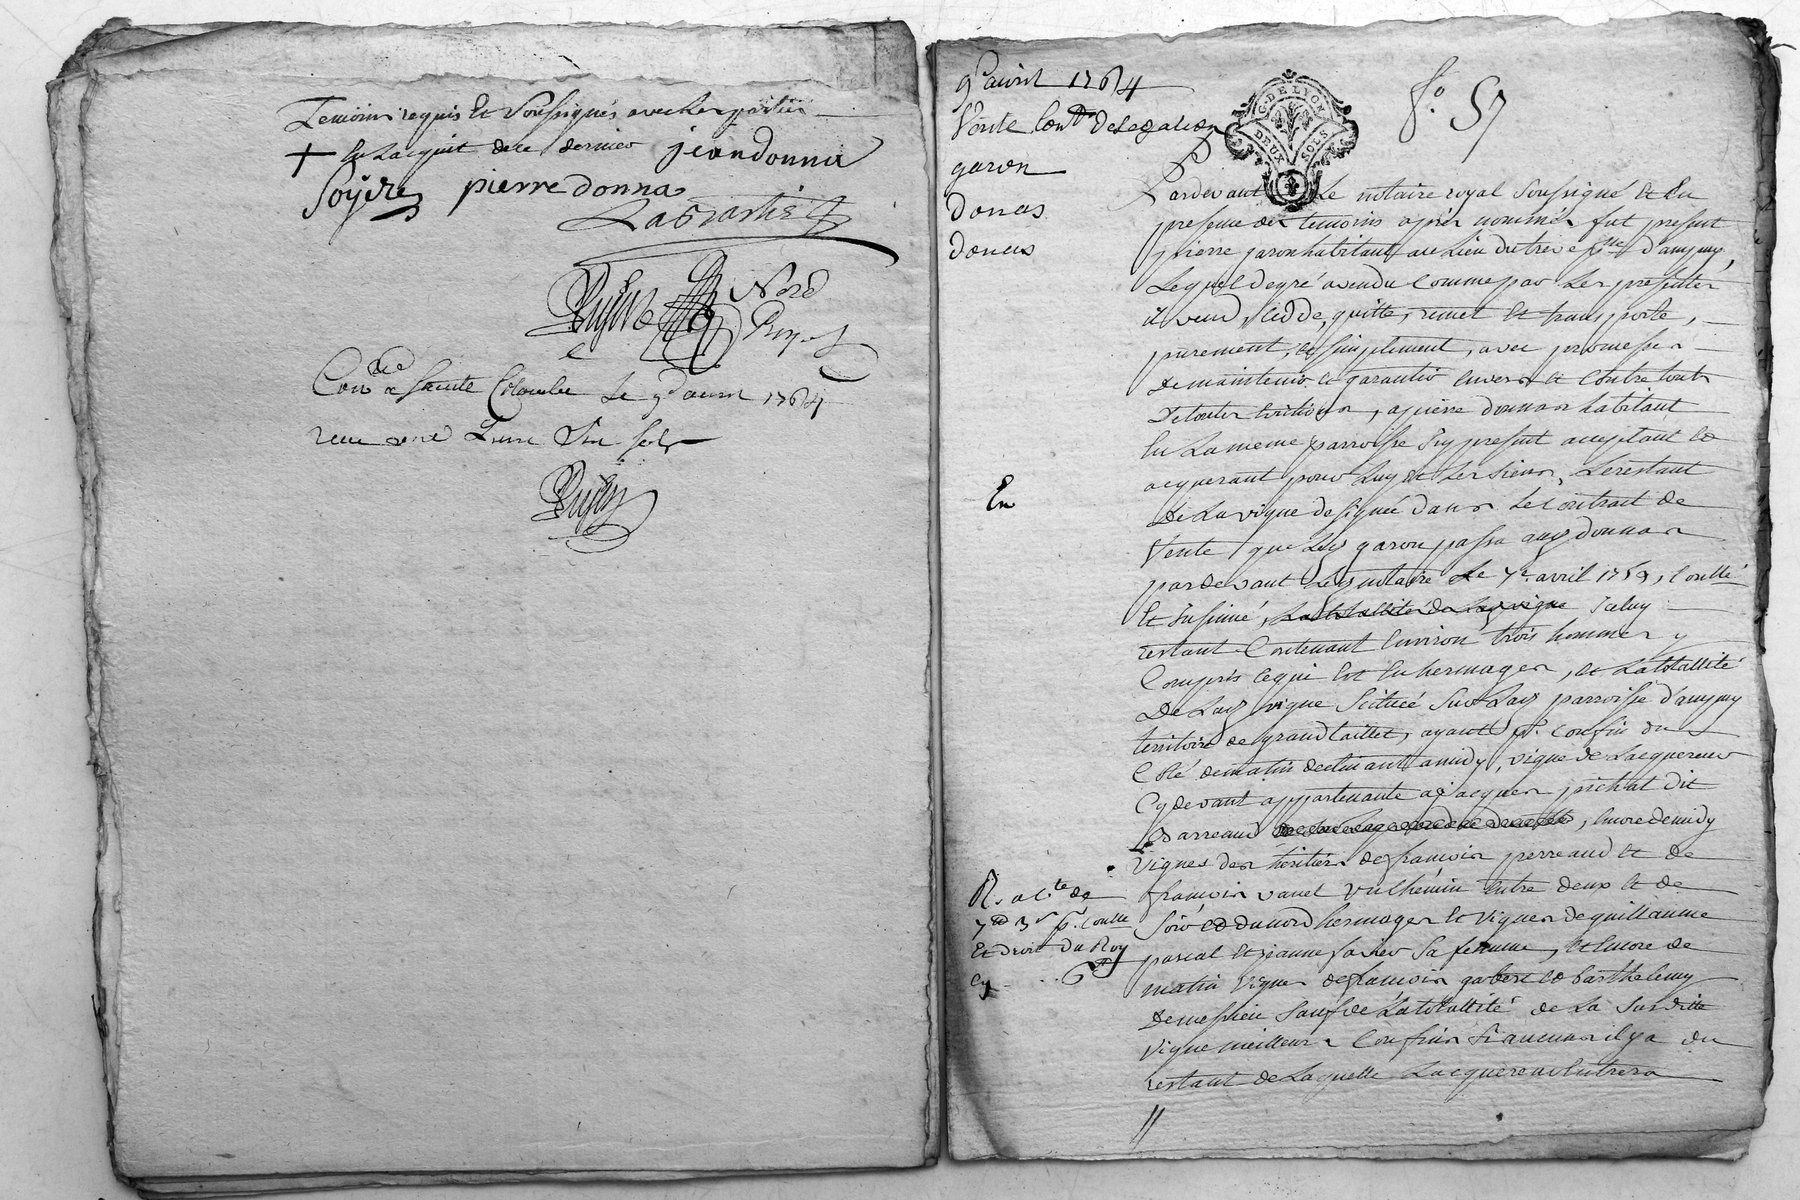 Temoins requis Et Soussignés avec les parties
+ En l'acquit de ce dernier jean donna
Soyere pierre donnas
Lagrartie
Dujin Nore
Royal
Con.lé a Sainte Colombe Le 9e avril 1764
recu une Livre un sols
Dujin
9e avril 1764
Vente Contt. delegation
garon
Donas
Donas
G. DE LYON
DEUX SOLS
f.o 57
Pardevant Le notaire royal Soussigné Et En
presence des temoins après nommés fut present
pierre garon habitant au Lieu du treve p.sse d'ampuy,
Lequel de gré a vendu Comme par Les presentes
il vend, cedde, quitte, remet Et transporte,
purement, et simplement, avec promesse
de maintenir et garantir envers et contre touts
De toutes evictions, a pierre donnas habitant
En La meme parroisse Icy present acceptant et
acquerant pour Luy et Les Siens, Le restant
De La vigne designée dans Le contrat de
En
Vente que Led. garon passa aud. donnas
pardevant Led. notaire Le 7e avril 1759, Conllé
Et Insinué, La totallité de Lad. vigne Icelui
restant Contenant Environ trois hommes y
Compris ce qui Est En hermages, et La totallité
De Lad. vigne Scituée Sur Lad. parroisse d'ampuy
territoire de grand taillet, ayant p.r confin du
Coté de matin declinant a midy, vigne de L'acquereur
Cy devant appartenante a jacques pichat dit
Barreaud, Encore de midy
Vignes des heritiers de francois perreaud et de
francois vanel vulhemin Entre deux et de
Soir et du nord hermages Et vignes de guillaume
pascal Et jeanne favier Sa femme, Et Encore de
matin Vignes de francois gabert et Barthelemy
Demessieu Sauf de La totallité de La Susditte
Vigne meilleurs Confins Si aucuns il y a du
restant de Laquelle L'acquereur Entrera
//
R. a C.te de
7tt 3s p.r Conlle
Et droit du Roy
Cy . . . 6tt